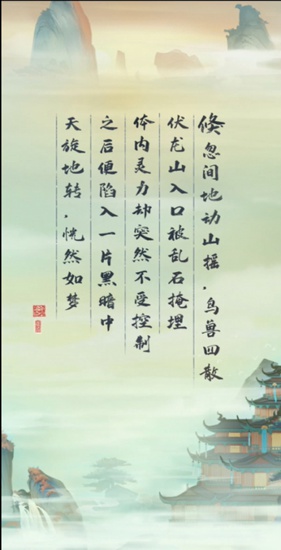 倏忽间地动山摇．鸟兽四散
伏龙山入口被乱石掩埋
体内灵力却突然不受控制
之后便陷入一片黑暗中
天旋地转．恍然如梦